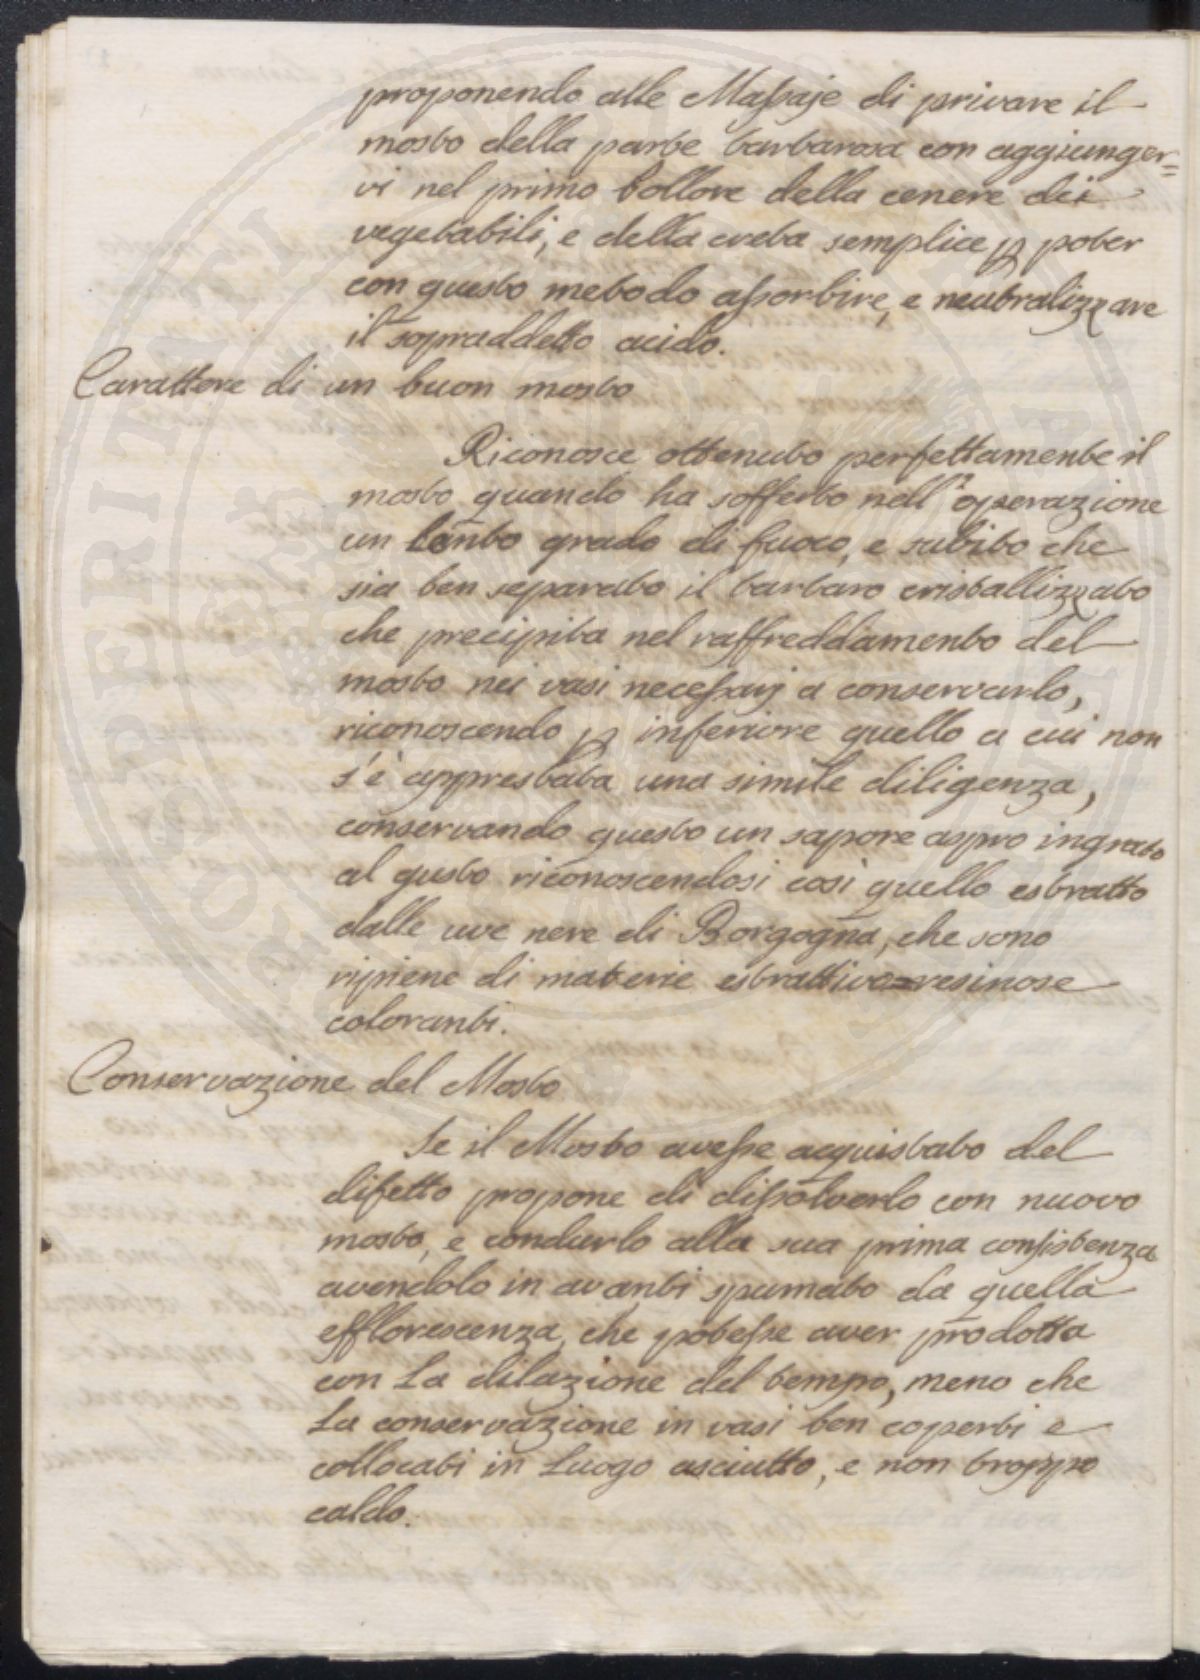 proponendo alle Massaje di privare il
mosto della parte tartarosa con aggiunger=
vi nel primo bollore della cenere dei
vegetabili, e della creta semplice p poter
con questo metodo assorbire, e neutralizzare
il sopraddetto acido.
Carattere di un buon mosto
Riconosce ottenuto perfettamente il
mosto quando ha sofferto nell'operazione
un lento grado di fuoco, e subito che
sia ben separato il tartaro cristallizzato
che precipita nel raffreddamento del
mosto nei vasi necessarj a conservarlo,
riconoscendo p inferiore quello a cui non
s'è apprestata una simile diligenza,
conservando questo un sapore aspro ingrato
al gusto riconoscendosi così quello estratto
dalle uve nere di Borgogna, che sono
ripiene di materie estrattivo=resinose
coloranti.
Conservazione del Mosto
Se il Mosto avesse acquistato del
difetto propone di dissolverlo con nuovo
mosto, e condurlo alla sua prima consistenza
avendolo in avanti spumato da quella
efflorescenza, che potesse aver prodotta
con la dilazione del tempo, meno che
la conservazione in vasi ben coperti e
collocati in luogo asciutto, e non troppo
caldo.
PROSPERITATI